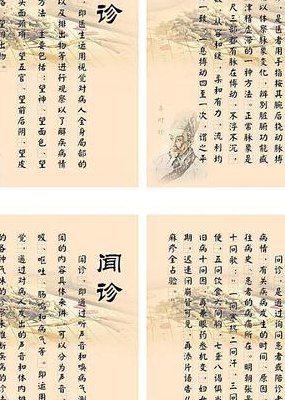 是医者用手指按其腕后挠动脉
以体察脉象变化，辨别脏腑功能盛
津精虚滞的一种方法。正常脉象是
尺三部都有脉在搏动，不浮不沉，
，从容和缓，柔和有力，流利均
一致，一息搏动四至一次，谓之平
李时珍
诊
即医生运用视觉对病人全身局部的
以及排出物等进行观察以了解疾病情
方法主要包括：望神、望面色、望
头面颈项、望五官、望前后阴、望皮
问诊：是通过询问患者
病情，有关疾病发生的时间、原因
往病史、患者的病痛所在。明朝张景
十问歌：“一问寒热二问汗，三问
便，五问饮食六问胸，七聋八渴俱当
旧病十问因，再兼服药参机变，妇
期，迟速闭崩皆可见，再添片语告儿
麻疹全占验
闻诊
闻诊：即通过听声音和嗅病气，测
闻的内容具体来讲，可以分为声音、
嗳、呕吐、肠鸣和病气等。即运用
觉，通过对病人发出的声音和体内排
的各种气味的诊察来推断疾病的诊